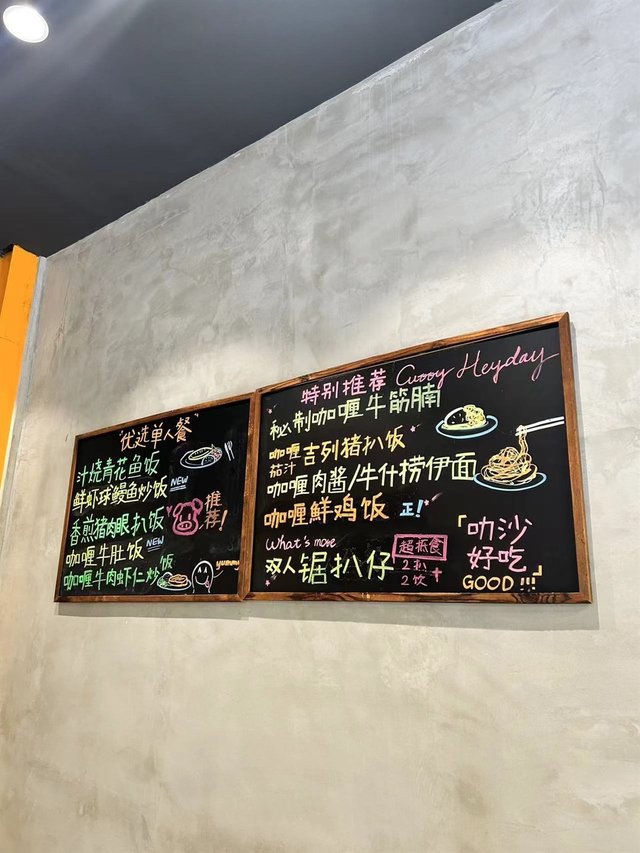 "优选单人餐"
汁烧青花鱼饭
鲜虾球鳗鱼炒饭 NEW
香煎猪肉眼扒饭
推荐!
咖喱牛肚饭 NEW
咖喱牛肉虾仁炒饭
yummy
特别推荐 Curry Heyday
秘制咖喱牛筋腩
咖喱茄汁吉列猪扒饭
咖喱肉酱/牛什捞伊面
咖喱鲜鸡饭 正!
What's more
双人锯扒仔
超抵食
2扒+
2饮
「叻沙
好吃
GOOD!!!」